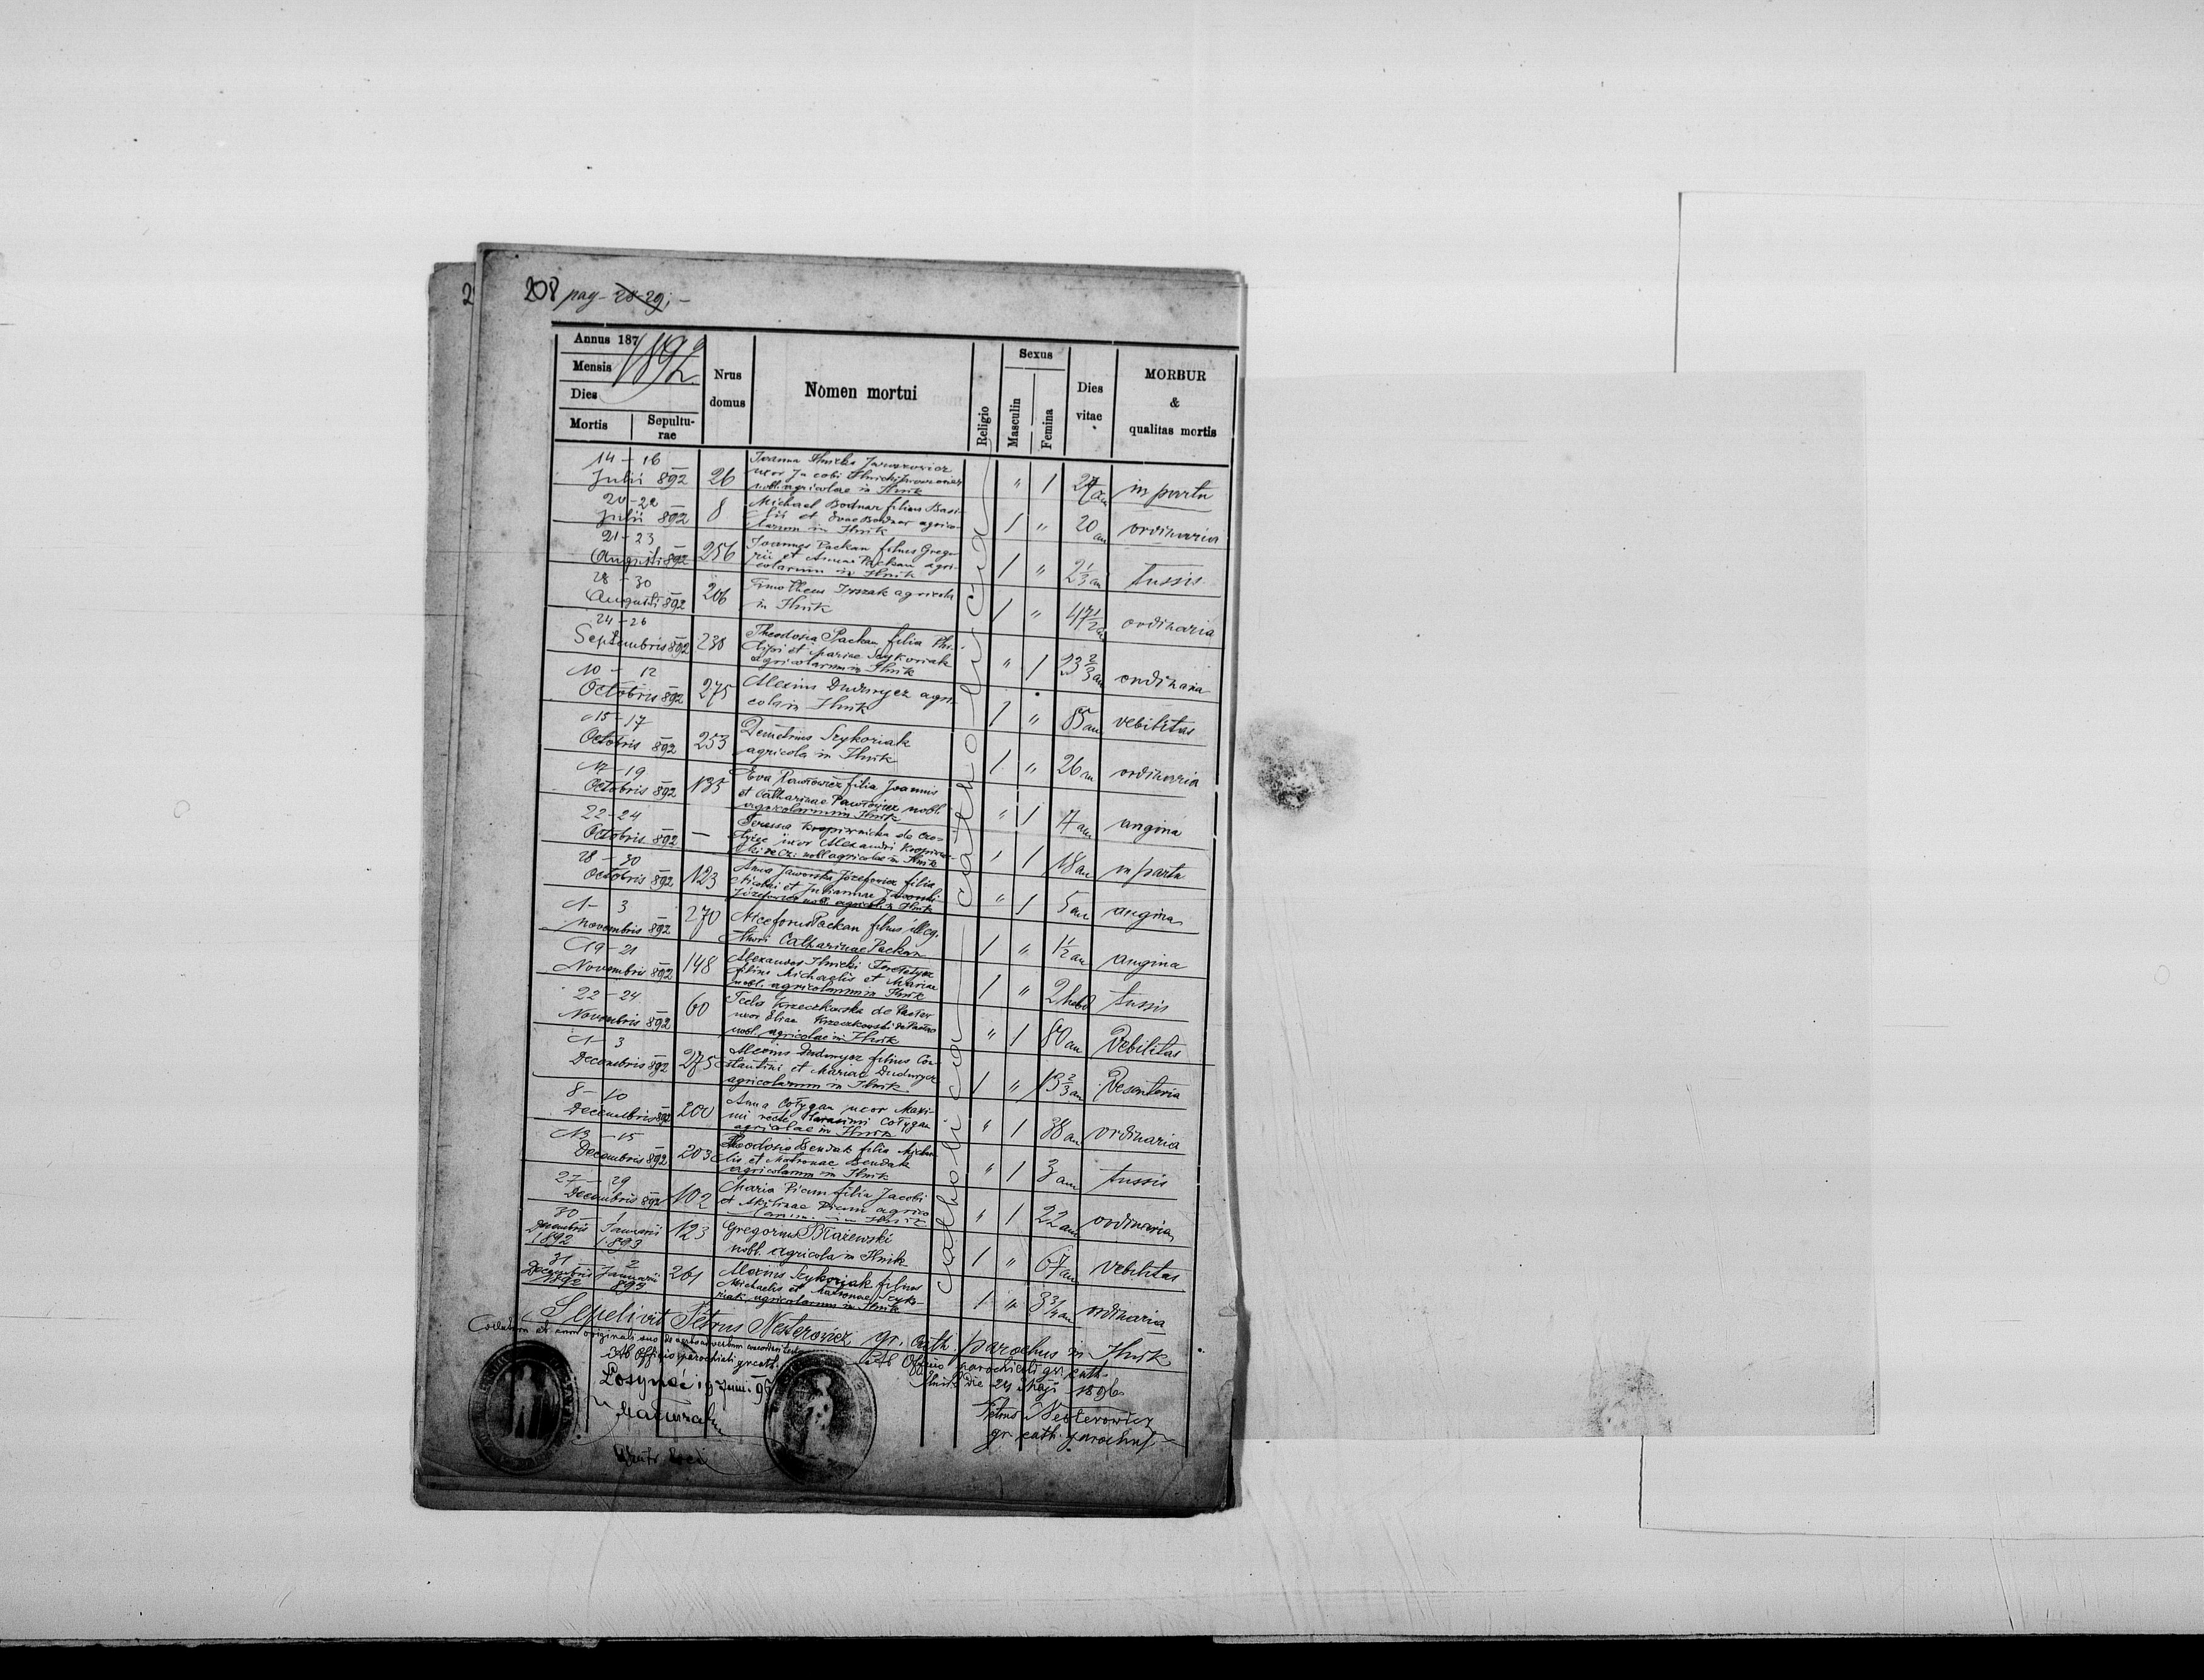 208 pag - 28-29; -
Annus 187 1892
Mensis
Dies
Mortis
Sepultu-
rae
Nrus
domus
Nomen mortui
Religio
Sexus
Masculin
Femina
Dies
vitae
MORBUR
&
qualitas mortis
catholica
catholica
14 - 16
Julii 892
26
Joanna Ilnicka Jaworowicz
uxor Jacobi Ilnicki Jaworowicz
nobl. agricolae in Ilnik
" 1 27 an in partu
20 - 22
Julii 892
8
Michael Bodnar filius Basi-
lii et Evae Bodnar agrico-
larum in Ilnik
1 " 20 an ordinaria
21 - 23
Augusti 892
256
Joannes Packan filius Grego-
rii et Annae Packan agri-
colarum in Ilnik
1 " 2 1/3 an tussis
28 - 30
Augusti 892
206
Timotheus Irszak agricola
in Ilnik
1 " 47 1/2 an ordinaria
24 - 26
Septembris 892
230
Theodosia Packan filia Phi-
lippi et Mariae Szykoriak
agricolarum in Ilnik
" 1 23 2/3 an ordinaria
10 - 12
Octobris 892
275
Alexius Dudurycz agri-
cola in Ilnik
1 " 85 an vebilitas
15 - 17
Octobris 892
253
Demetrius Szykoriak
agricola in Ilnik
1 " 26 an ordinaria
17 - 19
Octobris 892
135
Eva Pawłowicz filia Joannis
et Catharinae Pawłowicz nobl.
agricolarum in Ilnik
" 1 7 an angina
22 - 24
Octobris 892
—
Teressa Kropiwnicka de
uxor Alexandri
nobl agricolae in Ilnik
" 1 18 an in partu
28 - 30
Octobris 892
123
Anna Jaworska Józefowicz filia
Nicolai et Juliannae Jaworski
Józefowicz nobl. agricol in Ilnik
" 1 5 an angina
1 - 3
Novembris 892
270
Niceforus Packan filius illeg.
thori Catharinae Packan
1 " 1 1/2 an angina
19 - 21
Novembris 892
148
Alexander Ilnicki
filius Michaelis et Mariae
nobl. agricolarum in Ilnik
1 " 2 hebd tussis
22 - 24
Novembris 892
60
Tecla Krzeczkowska de Pacter
uxor Eliae Krzeczkowski de
nobl. agricolae in Ilnik
" 1 80 an Vebilitas
1 - 3
Decembris 892
275
Alexius Dudurycz filius Con-
stantini et Mariae Dudurycz
agricolarum in Ilnik
1 " 13 2/3 an Desenteria
8 - 10
Decembris 892
200
Anna Cołygan uxor Maxi-
mi recte Harasimi Cołygan
agricolae in Ilnik
" 1 38 an ordinaria
13 - 15
Decembris 892
203
Theodosia Bendak filia Michae-
lis et Matronae Bendak
agricolarum in Ilnik
" 1 3 an tussis
27 - 29
Decembris 892
102
Maria Picun filia Jacobi
et Akilinae Picun agrico-
larum in Ilnik
" 1 22 an ordinaria
30
Decembris
1892
1
Januarii
1893
123
Gregorius Błażewski
nobl. agricola in Ilnik
1 " 67 an vebilitas
31
Decembris
1892
2
Januarii
893
261
Alexius Szykoriak filius
Michaelis et Matronae Szyko-
riak agricolarum in Ilnik
1 " 3 3/4 an ordinaria
Sepelivit Petrus Nesterowicz gr. cath. parochus in Ilnik
Collatum et cum originali suo de verbo ad verbum
Ab Officio parochiali gr cath.
Łosyniec 19 Juni 96
Ab Officio parochiali gr. cath.
Ilnik die 24 Maji 1896
Petrus Nesterowicz
gr. cath. parochus